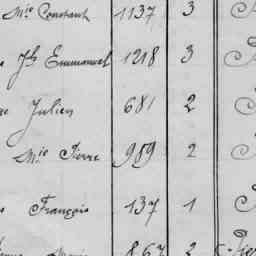 Mie Constant 1137 3
Jh Emmanuel 1218 3
Julien 681 2
Mie Pierre 989 2
François 137 1
867 2